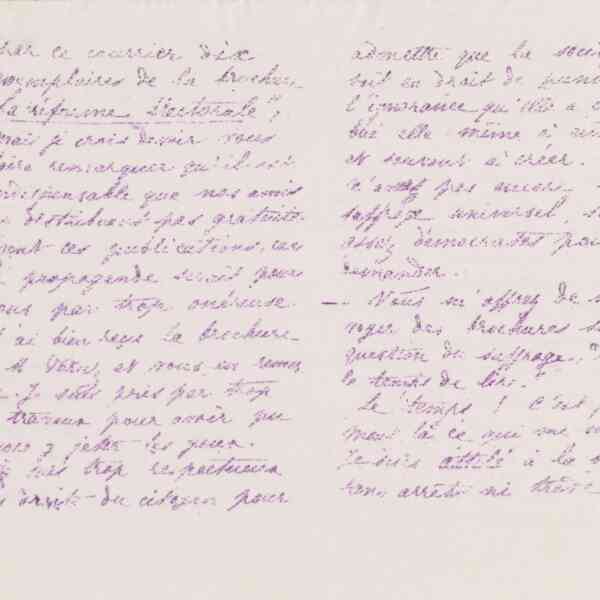 par ce courrier dix
exemplaires de la brochure
"la réforme électorale";
mais je crois devoir vous
faire remarquer qu'il est
indispensable que nos amis
ne distribuent pas gratuite-
ment ces publications, car
la propagande serait pour
nous par trop onéreuse.
J'ai bien reçu la brochure
de M et vous en remer
Je suis pris par trop
travaux pour avoir pu
y jeter les yeux.
suis trop respectueux
droits du citoyen pour
admettre que la soci
soit en droit de pun
l'ignorance qu'elle a
elle même à
et souvent à créer.
n'avez pas encore
suffrage universel,
assez démocrates pou
demander.
— Vous m'offrez de m
voyer des brochures s
question du suffrage, "
le temps de lire."
Le temps ! C'est
ment là ce qui me
Je suis attelé à la
sans arrêt ni trève